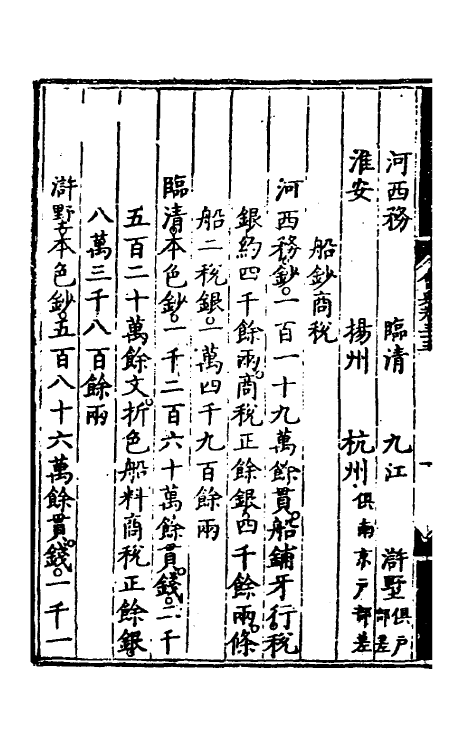 河西務 臨清 九江 滸墅俱戶部差
淮安 揚州 杭州俱南京戶部差
船鈔商税
河西務鈔一百一十九萬餘貫船鋪牙行税
銀約四千餘兩商税正餘銀四千餘兩條
船二税銀一萬四千九百餘兩
臨清本色鈔一千二百六十萬餘貫錢二千
五百二十萬餘文折色船料商税正餘銀
八萬三千八百餘兩
滸野本色鈔五百八十六萬餘貫錢一千一